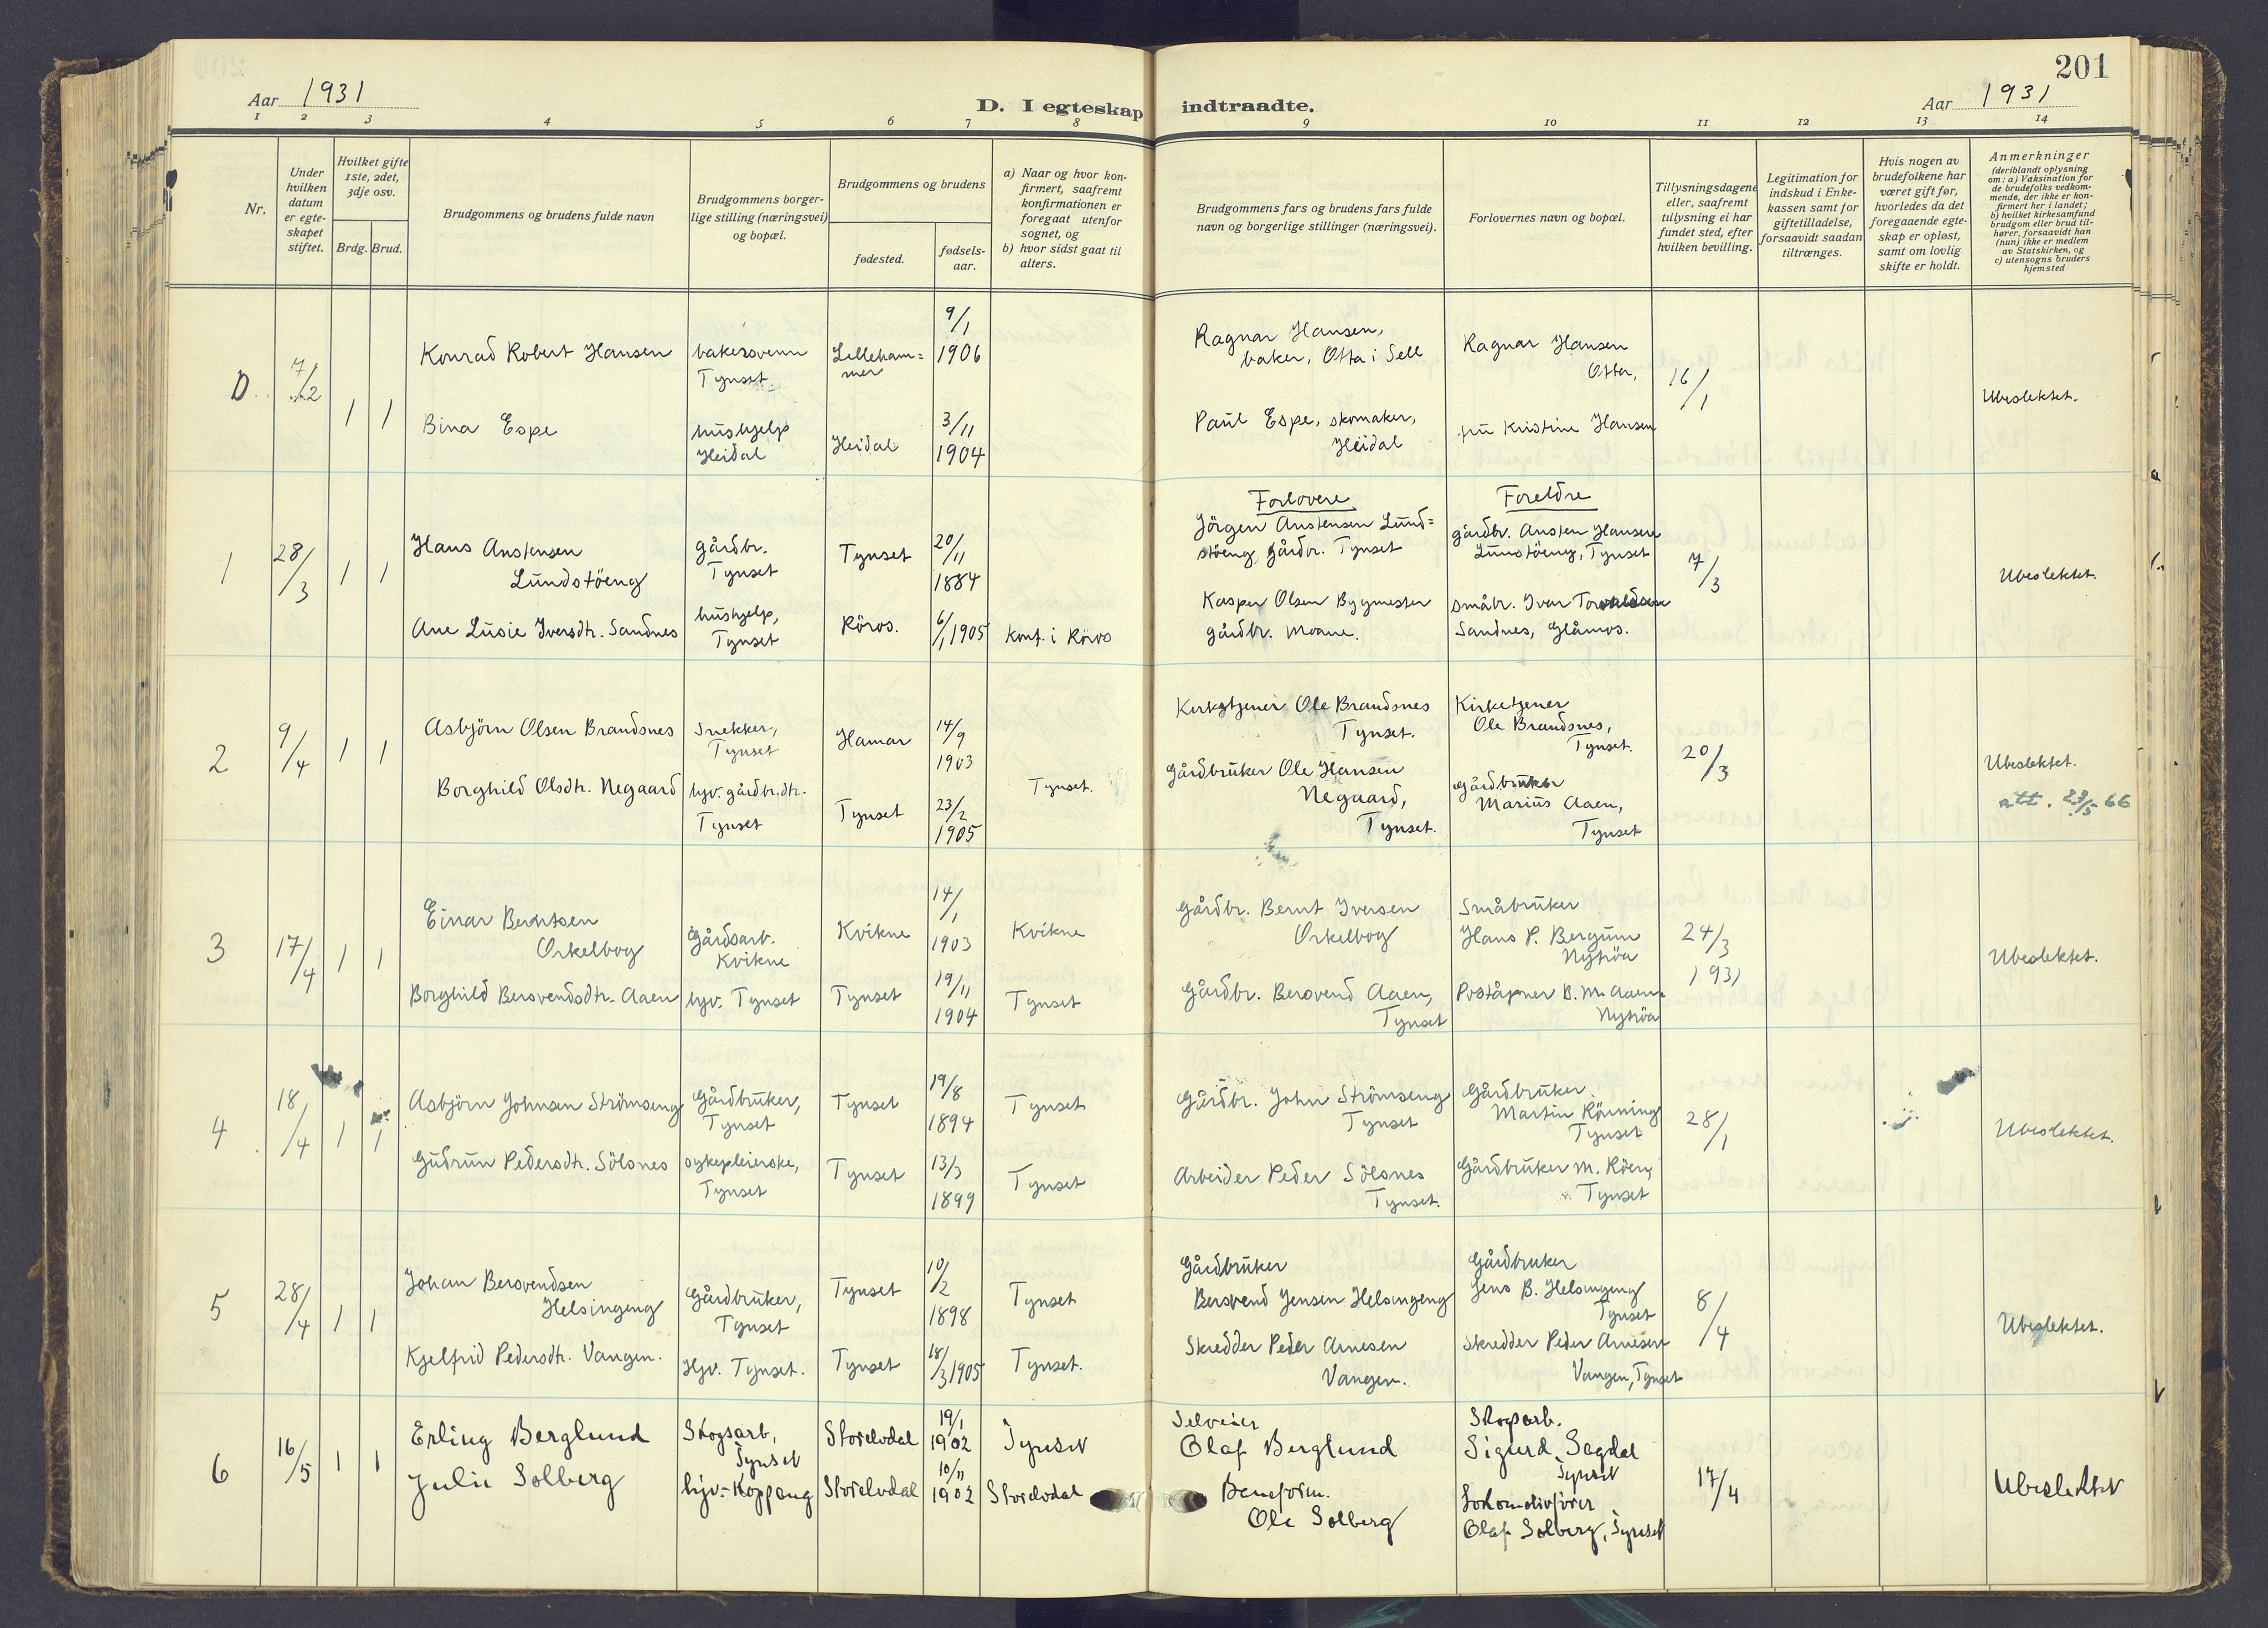 201
Aar 1931
D. I egteskap indtraadte.
Aar 1931
1 2 3 4 5 6 7 8 9 10 11 12 13 14
Nr.
Under hvilken datum er egteskapet stiftet.
Hvilket gifte 1ste, 2det, 3dje osv.
Brdg. Brud.
Brudgommens og brudens fulde navn
Brudgommens borgerlige stilling (næringsvei) og bopæl.
Brudgommens og brudens
fødested.
fødselsaar.
a) Naar og hvor konfirmert, saafremt konfirmationen er foregaat utenfor sognet, og
b) hvor sidst gaat til alters.
Brudgommens fars og brudens fars fulde navn og borgerlige stillinger (næringsvei).
Forlovernes navn og bopæl.
Tillysningsdagene eller, saafremt tillysning ei har fundet sted, efter hvilken bevilling.
Legitimation for indskud i Enkekassen samt for giftetilladelse, forsaavidt saadan tiltrænges.
Hvis nogen av brudefolkene har været gift før, hvorledes da det foregaaende egteskap er opløst, samt om lovlig skifte er holdt.
Anmerkninger (deriblandt oplysning om: a) Vaksination for de brudefolks vedkommende, der ikke er konfirmert her i landet; b) hvilket kirkesamfund brudgom eller brud tilhører, forsaavidt han (hun) ikke er medlem av Statskirken, og c) utensogns bruders hjemsted
D 7/2 1 1
Konrad Robert Hansen bakersvenn Tynset Lillehammer 9/1 1906
Ragnar Hansen, baker, Otta i Sell
Ragnar Hansen Otta,
16/1
Ubeslektet.
Bina Espe hushjelp Heidal Heidal 3/11 1904
Paul Espe, skomaker, Heidal
fru Kristine Hansen
Forlovere Foreldre
1 28/3 1 1
Hans Anstensen Lundstöeng gårdbr. Tynset Tynset 20/11 1884
Jörgen Anstensen Lundstöeng, gårdbr. Tynset
gårdbr. Austen Hansen Lunstöeng, Tynset
7/3
Ubeslektet.
Ane Lusie Iversdtr. Sandnes hushjelp, Tynset Röros. 6/1 1905 Konf. i Röros
Kasper Olsen Bygmester gårdbr. Moane.
småbr. Ivar Torvaldsen Sandnes, Glåmos.
2 9/4 1 1
Asbjörn Olsen Brandsnes Snekker, Tynset Hamar 14/9 1903
Kirketjener Ole Brandsnes Tynset.
Kirketjener Ole Brandsnes, Tynset.
20/3
Ubeslektet.
att. 23/5-66
Borghild Olsdtr. Negaard hjv. gårdbr.dtr. Tynset Tynset 23/2 1905 Tynset.
Gårdbruker Ole Hansen Negaard, Tynset.
Gårdbruker Marius Aaen, Tynset
3 17/4 1 1
Einar Berntsen Orkelbog Gårdsarb. Kvikne Kvikne 14/1 1903 Kvikne
Gårdbr. Bernt Iversen Orkelbog
Småbruker Hans P. Bergum Nytröa
24/3 1931
Ubeslektet.
Borghild Bersvendsdtr. Aaen hjv. Tynset Tynset 19/11 1904 Tynset
Gårdbr. Bersvend Aaen, Tynset
Poståpner B. M. Aaen Nytröa
4 18/4 1 1
Asbjörn Johnsen Strömseng Gårdbruker, Tynset Tynset 19/8 1894 Tynset
Gårdbr. John Strömseng Tynset
Gårdbruker Martin Rönning Tynset
28/1
Ubeslektet.
Gudrun Pedersdtr. Sölsnes sykepleierske, Tynset Tynset 13/3 1899 Tynset
Arbeider Peder Sölsnes Tynset.
Gårdbruker M. Röeng Tynset
5 28/4 1 1
Johan Bersvendsen Helsingeng Gårdbruker, Tynset Tynset 10/2 1898 Tynset
Gårdbruker Bersvend Jensen Helsingeng
Gårdbruker Jens B. Helsingeng Tynset
8/4
Ubeslektet.
Kjelfrid Pedersdtr. Vangen. Hjv. Tynset. Tynset 18/3 1905 Tynset.
Skredder Peder Arnesen Vangen.
Skredder Peder Arnesen Vangen, Tynset
6 16/5 1 1
Erling Berglund Skogsarb, Tynset Storelvdal 19/1 1902 Tynset
Selveier Olaf Berglund
Skogsarb. Sigurd Sagdal Tynset
17/4
Ubeslektet
Julie Solberg hjv.- Koppang Storelvdal 10/11 1902 Storelvdal
Baneform. Ole Solberg
Lokomotivfører Olaf Solberg, Tynset